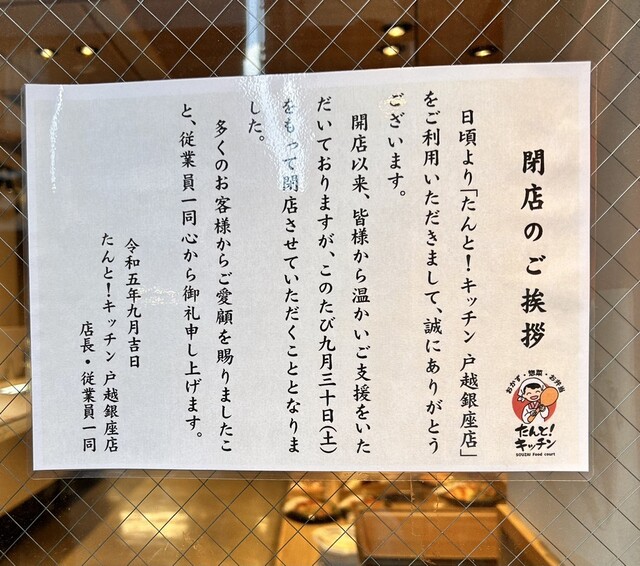 閉店のご挨拶
日頃より「たんと！キッチン 戸越銀座店」
をご利用いただきまして、誠にありがとう
ございます。
開店以来、皆様から温かいご支援をいた
だいておりますが、このたび九月三十日（土）
をもって閉店させていただくこととなりま
した。
多くのお客様からご愛顧を賜りましたこ
と、従業員一同心から御礼申し上げます。
令和五年九月吉日
たんと！キッチン 戸越銀座店
店長・従業員一同
おかず・惣菜・お弁当
たんと！
キッチン
SOUZAI Food court